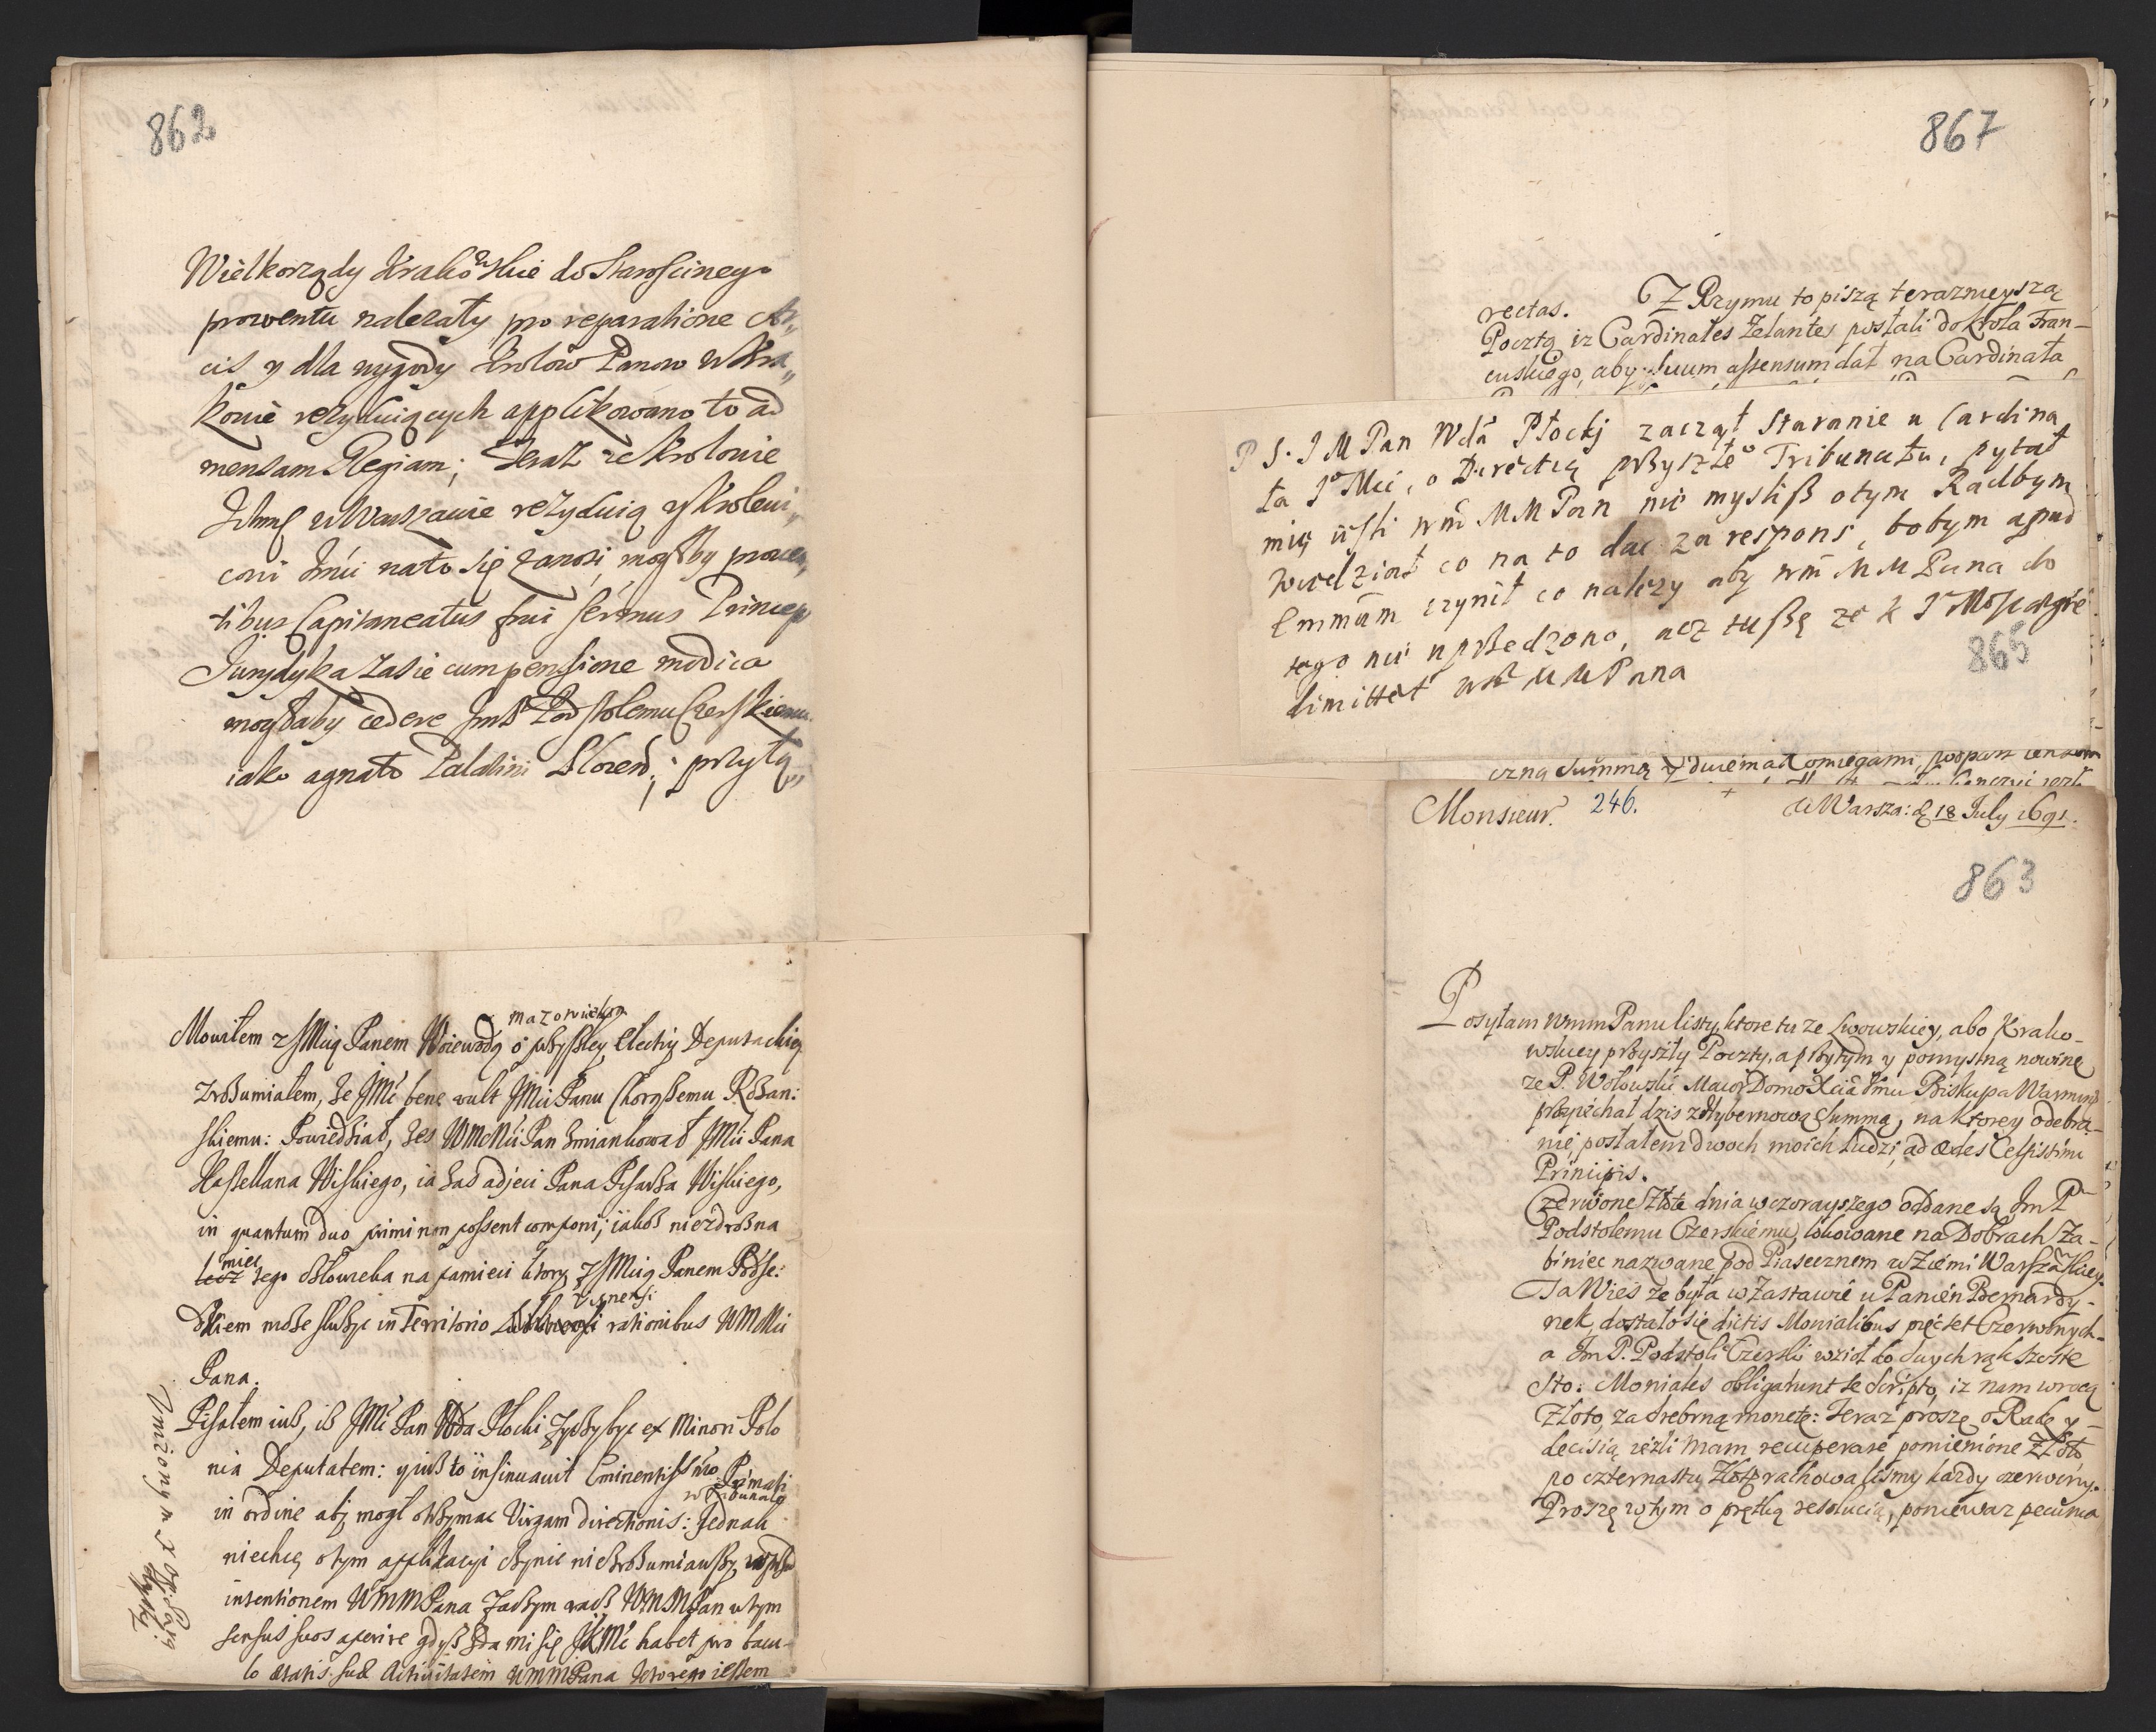 862
Wielkorządy Krakowskie do Staroscinego
prowentu należały, pro reparatione Ar„
cis y dla wygody Krolow Panow w Kra„
kowie rezyduiących applikowano to ad
mensam Regiam; Teraz ze Krolowie
Ichmć w Warszawie rezyduią y Krolewi„
cowi Jmći na to się zanosi, mogłby proven„
tibus Capitaneatus frui Sermus Princeps
Jurydyka zasie cum pensione modica
mogłaby cedere Jmć Podstolemu Czerskiemu
iako agnato Palatini Ploceń; przytą„
Mowiłem z JMcią Panem Woiewodą mazowieckim o przyszłey Elechij Deputackiey
zrozumiałem, że JMć bene vult JMći Panu Chorążemu Rożan:
skiemu: Powiedział, żeś WMcMći Pan zmiankował JMći Pana
Kastellana Wiskiego, ia zas adjeci Pana Pisarza Wiskiego,
in quantum duo primi non possent componi; iakoż niezdrożna
miec tego człowieka na pamieci ktory z JMcią Panem Podse:
dkiem może służyc in Territorio Visnensi rationibus WMMci
Pana.
Pisałem iuż, iż JMć Pan Wda Płocki życzyłbyc ex Minori Polo
nia Deputatem: y iuż to insinuavit Eminentissimo Primati
in ordine aby mogł otrzymac Virgam directionis w Tribunale: Jednak
niechcę o tym applikacyi czynic nie zrozumiawszy wprzod
intentionem WMMPana Zaczym racz WMMPan w tym
sensus suos aperire gdyż zda mi się JKMć habet pro bacu-
lo aetatis suae Activitatem WMMPana ktorego iestem
Vniżonym
867
rectas. Z Rzymu to piszą teraznieyszą
Pocztą iz Cardinales Zelantes posłali do Krola Fran-
cuskiego, aby suum assensum dał na Cardinała
P S. J M Pan Wda Płockj zaczął Staranie u Cardina
ła J Mci, o Directią przyszłe° Tribunału, pytał
mię iesli Wm M M Pan nie myslisz o tym Radbym
wiedział co na to dac za respons, bobym apud
Emmam czynił co należy aby Wm M M Pana do
tego nie uprzedzono, acz tuszę ze
limittet Wm M M Pana
865
czną Summą y dwiema omięgami, podparł
Monsieur. 246. a Warsza: d. 18 July 1691.
863
Posyłam WmmPanu listy, ktore tu ze Lwowskiey, abo Krako-
wskiey przyszły Poczty, a przytym y pomyslną nowinę
ze P. Wołowski Maior Domo Xcia Jmci Biskupa Warmiń
przyiechał dzis z Tybernową Summą, na ktorey odebra-
nie, posłałem dwoch moich ludzi, ad aedes Celsissimi
Principis.
Czerwone Złote dnia wczorayszego oddane są Jm P
Podstolemu Czerskiemu, lokowane na Dobrach Ża-
biniec nazwane pod Piasecznem w Ziemi Warszaskiey.
Ta Wies że była w Zastawie u Panien Bernardy-
nek, dostało się dictis Monialibus pięćset Czerwonych-
a Jm P. Podstoli Czerski wziął do swych rąk szoste
Sto: Moniales obligarunt se scripto, iz nam wrocą
Złoto, za srebrną monetę: Teraz proszę o Radę y
decisią iezli mam recuperare pomienione Złoto,
po czternastu Złott rachowalismy kazdy czerwony.
Proszę w tym o prętką resolucią, poniewaz pecunia